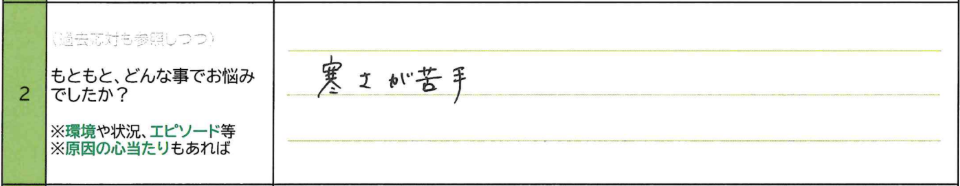 2
(過去応対も参照しつつ)
もともと、どんな事でお悩み
でしたか？
※環境や状況、エピソード等
※原因の心当たりもあれば
寒さが苦手